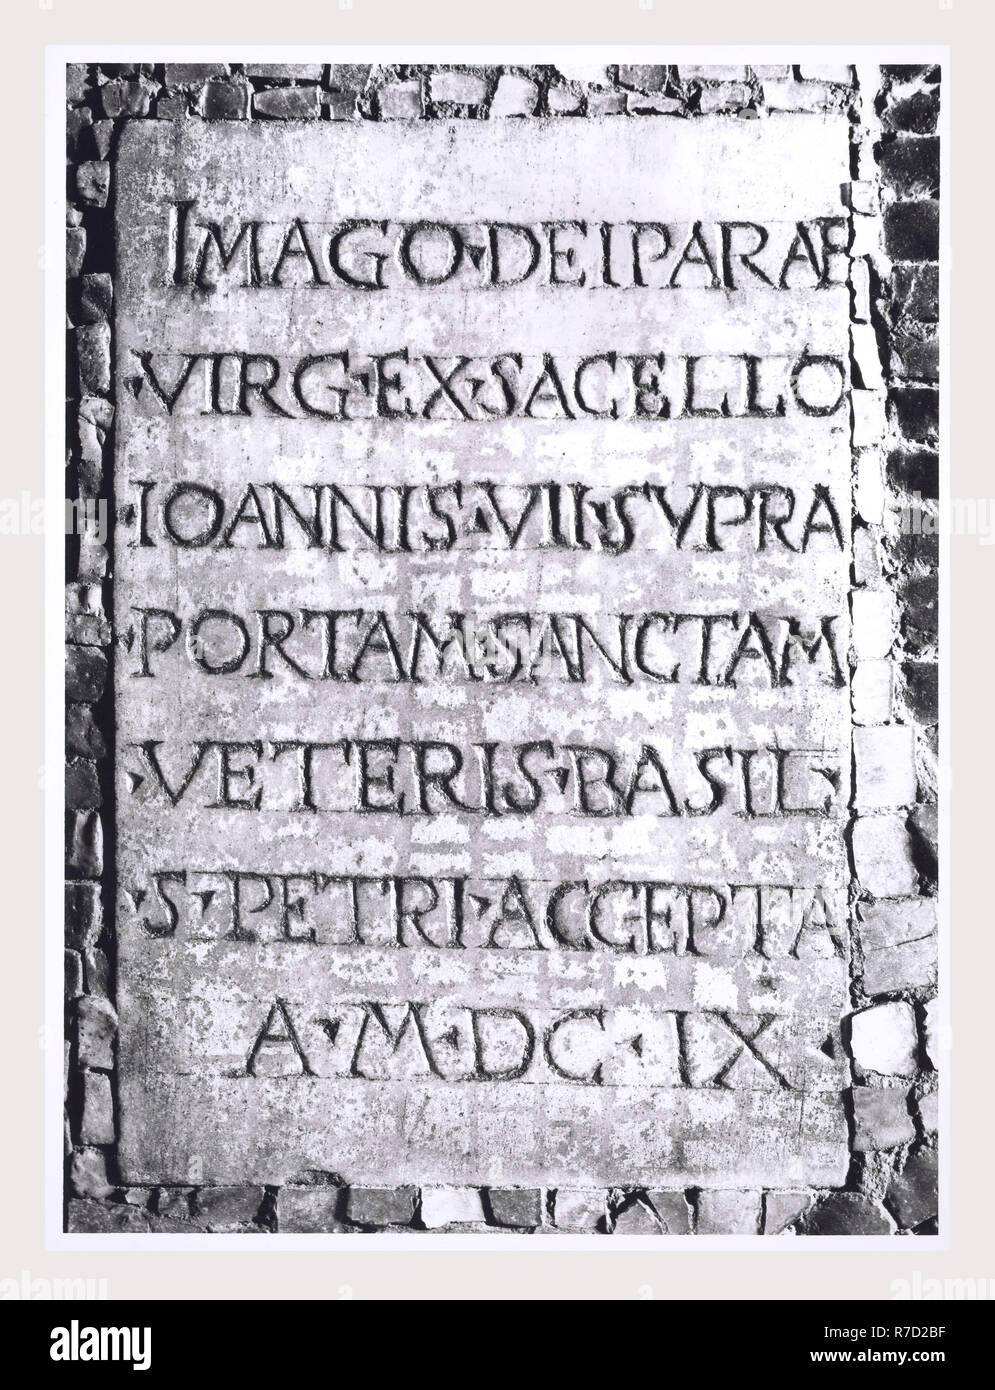 IMAGO·DEIPARÆ
·VIRG·EX·SACELLO
·IOANNIS·VII·SVPRA
·PORTAM·SANCTAM
·VETERIS·BASIL·
·S·PETRI·ACCEPTA
A·M·DC·IX·
alamy
alamy
Image ID: R7D2BF
www.alamy.com